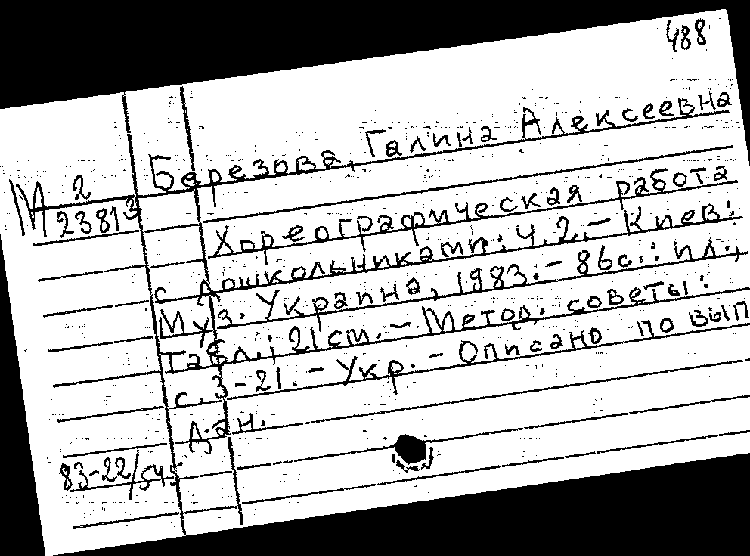 488
Березова, Галина Алексеевна
М 2
23813
Хореографическая работа
с дошкольниками: Ч. 2. - Киев:
Муз. Украина, 1983. - 86с.: ил.,
табл.; 21 cm. - Метод. советы:
с. 3-21. - Укр. - Описано по вып.
дан.
83-22/545